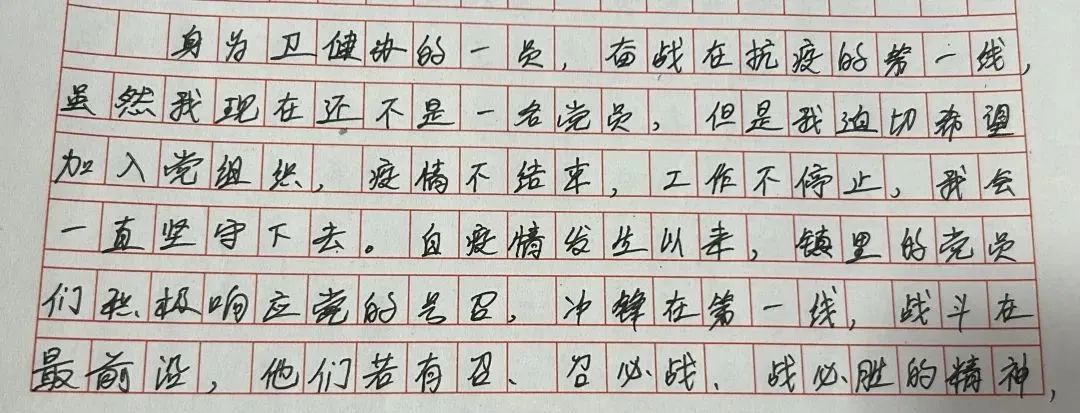 身为卫健办的一员，奋战在抗疫的第一线，
虽然我现在还不是一名党员，但是我迫切希望
加入党组织，疫情不结束，工作不停止，我会
一直坚守下去。自疫情发生以来，镇里的党员
们积极响应党的号召，冲锋在第一线，战斗在
最前沿，他们若有召、召必战、战必胜的精神，